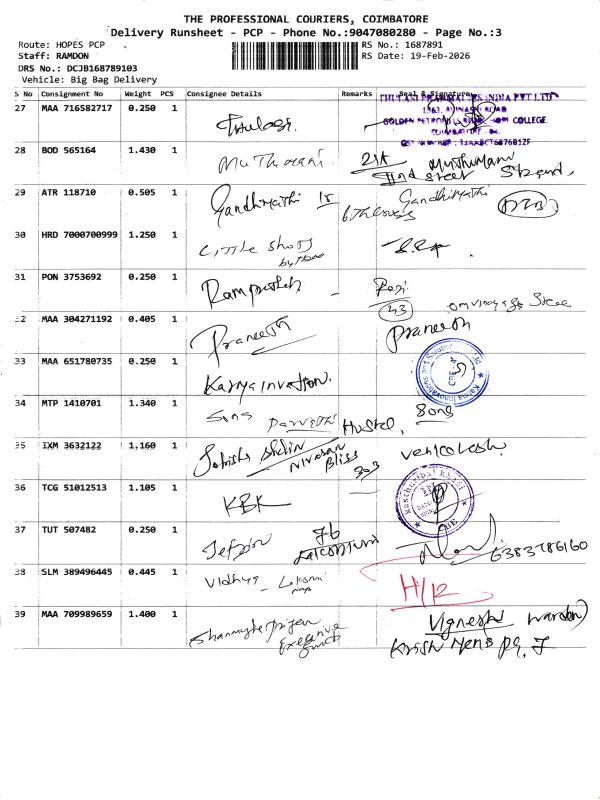 THE PROFESSIONAL COURIERS, COIMBATORE
Delivery Runsheet - PCP - Phone No.:9047080280 - Page No.:3
Route: HOPES PCP
RS No.: 1687891
Staff: RAMDON
RS Date: 19-Feb-2026
DRS No.: DCJB168789103
Vehicle: Big Bag Delivery
S No Consignment No Weight PCS Consignee Details Remarks Seal & Signature
27 MAA 716582717 0.250 1 Thulasi
INDIA PVT LTD
COLLEGE
28 BOD 565164 1.430 1 Muthumani 21A Muthumani
IInd street
29 ATR 118710 0.505 1 Gandhimathi 15 6th cross Gandhimathi
30 HRD 7000700999 1.250 1 Little Shots
31 PON 3753692 0.250 1 Ramprakash
32 MAA 304271192 0.405 1 Praneeth Praneeth
33 MAA 651780735 0.250 1 Karya
34 MTP 1410701 1.340 1 Sons Parvathi Hostel, Song
35 IXM 3632122 1.160 1 Nivasan Bliss 303 Venkatesh.
36 TCG 51012513 1.105 1 KBK
37 TUT 507482 0.250 1 Jefrin 7b 6383786160
38 SLM 389496445 0.445 1 Vidhya - Lakshmi H/R
39 MAA 709989659 1.400 1 Executive Vignesh (warden)
Krish Mens PG, 7